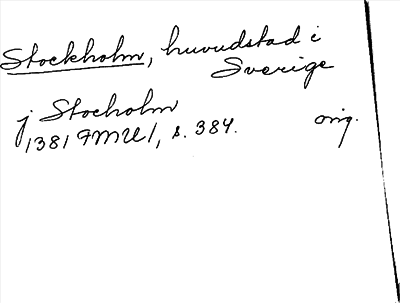 Stockholm, huvudstad i
Sverige
j Stocholm
1381 FMU I, s. 384. orig.